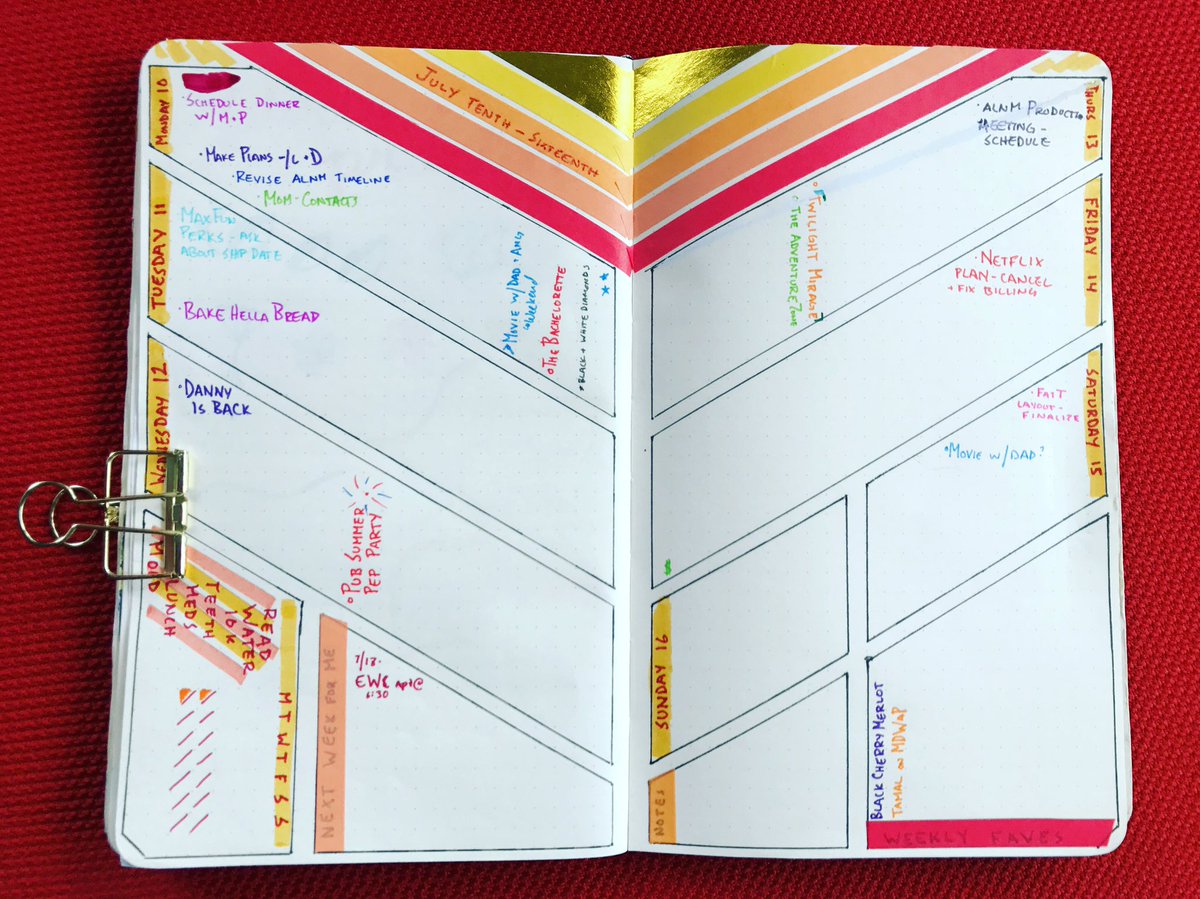 JULY TENTH - SIXTEENTH
MONDAY 10
· SCHEDULE DINNER
W/ M + P
· MAKE PLANS - /L + D
· REVISE ALNM TIMELINE
· MOM - CONTACTS
TUESDAY 11
MAXFUN
PERKS - ASK
ABOUT SHIP DATE
· BAKE HELLA BREAD
MOVIE W/ DAD + ANG
WEEKEND
THE BACHELORETTE
BLACK + WHITE DIAMONDS
WEDNESDAY 12
· DANNY
IS BACK
PUB SUMMER
PEP PARTY
READ
WATER
10K
TEETH
MEDS
LUNCH
M T W T F S S
NEXT WEEK FOR ME
7/18 -
EWC APPT @
6:30
THURS 13
· ALNM PRODUCTION
MEETING -
SCHEDULE
TWILIGHT MIRAGE
THE ADVENTURE ZONE
FRIDAY 14
· NETFLIX
PLAN - CANCEL
+ FIX BILLING
SATURDAY 15
· FATT
LAYOUT -
FINALIZE
MOVIE W/ DAD?
SUNDAY 16
NOTES
BLACK CHERRY MERLOT
TAMAL ON MDWAP
WEEKLY FAVES